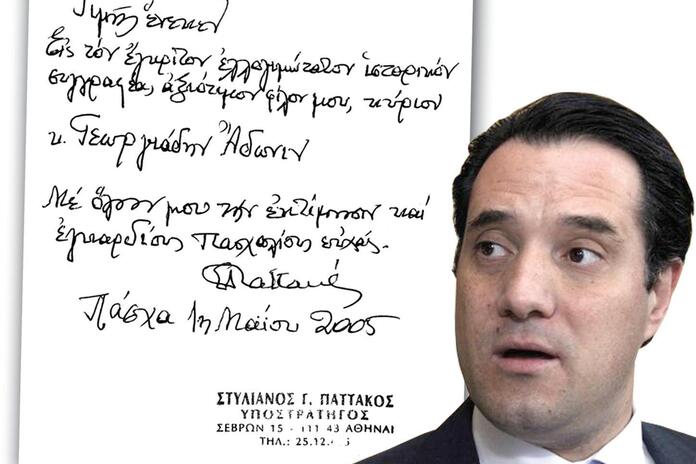 Τιμῆς ἕνεκεν
Εἰς τόν ἔγκριτον ἐλλογιμώτατον ἱστορικόν
συγγραφέα, ἀξιότιμον φίλον μου, κύριον
κ. Γεωργιάδην Ἄδωνιν
Μέ ὅλην μου τήν ἐκτίμησιν καί
ἐγκαρδίους Πασχαλίους εὐχάς.
Παττακός
Πάσχα 1η Μαΐου 2005
ΣΤΥΛΙΑΝΟΣ Γ. ΠΑΤΤΑΚΟΣ
ΥΠΟΣΤΡΑΤΗΓΟΣ
ΣΕΒΡΩΝ 15 - 111 43 ΑΘΗΝΑΙ
ΤΗΛ.: 25.12.